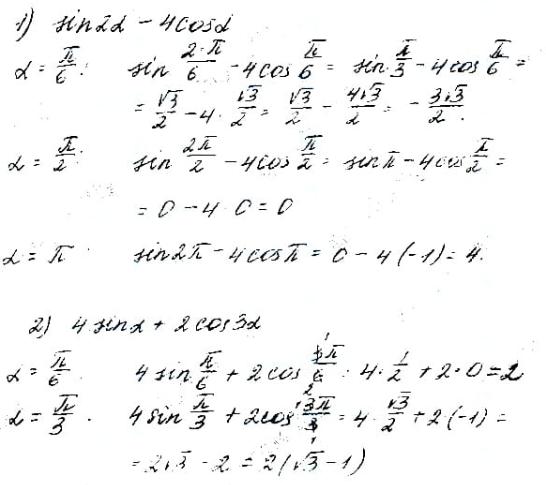 1) sin2α − 4cosα
α = π/6 : sin 2·π/6 − 4cos π/6 = sin π/3 − 4cos π/6 =
= √3/2 − 4 · √3/2 = √3/2 − 4√3/2 = − 3√3/2.
α = π/2 : sin 2π/2 − 4cos π/2 = sinπ − 4cos π/2 =
= 0 − 4 · 0 = 0
α = π . sin2π − 4cosπ = 0 − 4(−1) = 4.
2) 4sinα + 2cos3α
α = π/6 . 4sin π/6 + 2cos 3π/6 = 4 · 1/2 + 2 · 0 = 2
α = π/3 . 4sin π/3 + 2cos 3π/3 = 4 · √3/2 + 2(−1) =
= 2√3 − 2 = 2(√3 − 1)